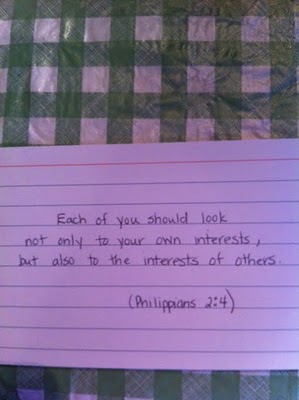 Each of you should look
not only to your own interests,
but also to the interests of others.
(Philippians 2:4)